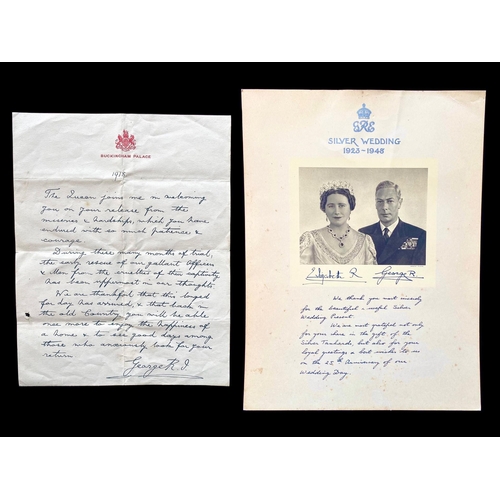 BUCKINGHAM PALACE
1918
The Queen joins me in welcoming
you on your release from the
miseries & hardships, which you have
endured with so much patience &
courage.
During these many months of trial,
the early rescue of our gallant Officers
& Men from the cruelties of their captivity
has been uppermost in our thoughts.
We are thankful that this longed
for day has arrived, & that back in
the old Country you will be able
once more to enjoy the happiness of
a home & to see good days among
those who anxiously look for your
return.
George R.I.
GRE
SILVER WEDDING
1923-1948
Elizabeth R
George R
We thank you most sincerely
for the beautiful & useful Silver
Wedding Present.
We are most grateful not only
for your share in the gift of the
Silver Tankards, but also for your
loyal greetings & best wishes to us
on the 25th Anniversary of our
Wedding Day.